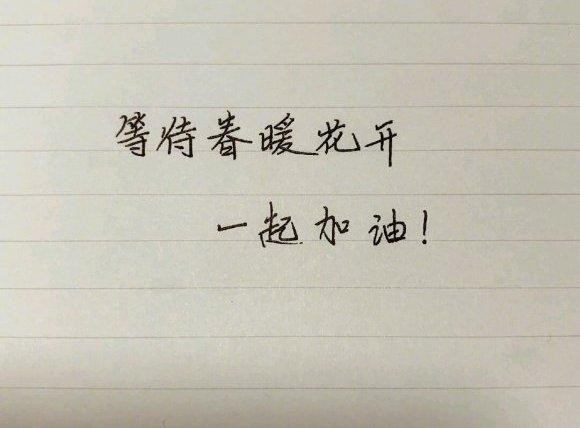 等待春暖花开
一起加油!